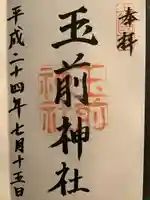 奉拝
玉前神社
平成二十四年七月十五日